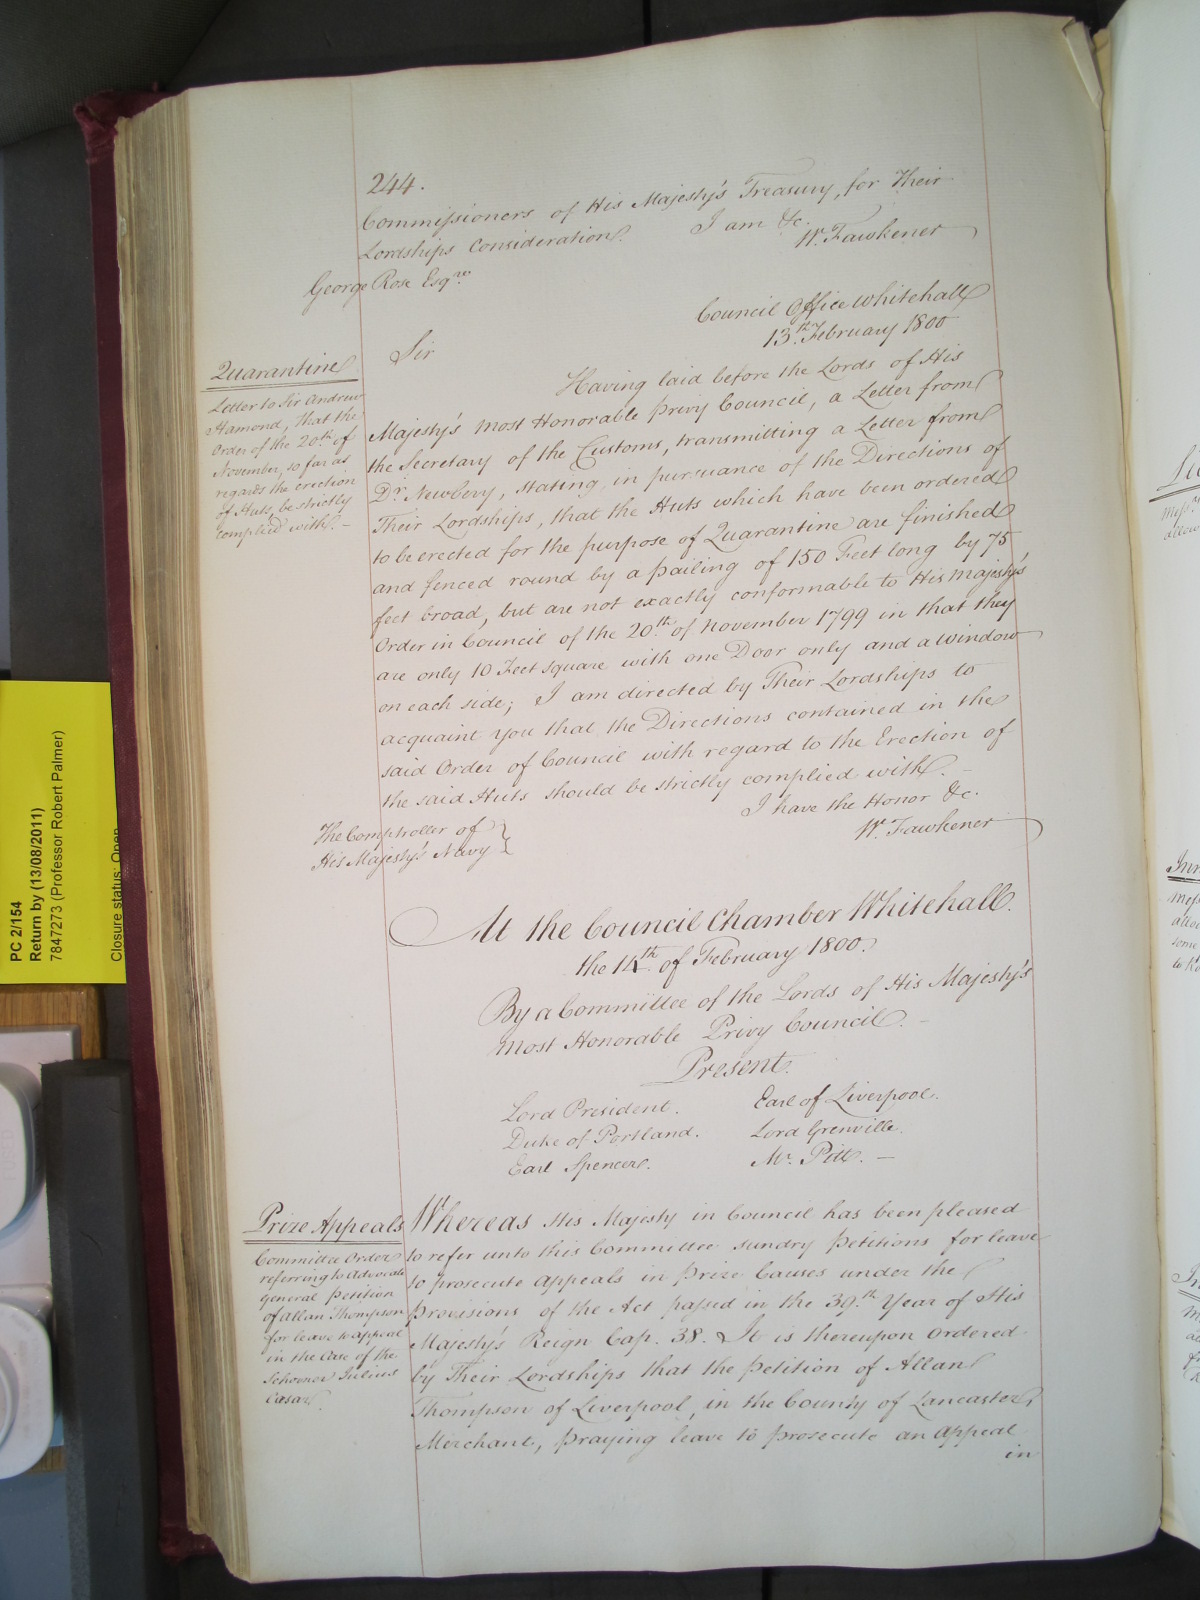 244.
Commissioners of His Majesty's Treasury, for Their
Lordships Consideration. I am &c.
W. Fawkener
George Rose Esqre
Council Office Whitehall
13th February 1800
Sir
Quarantine
Letter to Sir Andrew
Hamond, that the
Order of the 20th of
November, so far as
regards the erection
of Huts, be strictly
complied with. -
Having laid before the Lords of His
Majesty's most Honorable Privy Council, a Letter from
the Secretary of the Customs, transmitting a Letter from
Dr. Newbery, stating, in pursuance of the Directions of
Their Lordships, that the Huts which have been ordered
to be erected for the purpose of Quarantine are finished
and fenced round by a pailing of 150 Feet long by 75
feet broad, but are not exactly conformable to His Majesty's
Order in Council of the 20th of November 1799 in that they
are only 10 Feet square with one Door only and a window
on each side; I am directed by Their Lordships to
acquaint you that the Directions contained in the
said Order of Council with regard to the Erection of
the said Huts should be strictly complied with. -
I have the Honor &c.
W. Fawkener
The Comptroller of
His Majesty's Navy }
At the Council Chamber Whitehall.
the 14th of February 1800.
By a Committee of the Lords of His Majesty's
most Honorable Privy Council. -
Present.
Lord President. Earl of Liverpool.
Duke of Portland. Lord Grenville.
Earl Spencer. Mr. Pitt. -
Prize Appeals
Committee Order
referring to Advocate
General Petition
of Allan Thompson
for leave to appeal
in the Case of the
Schooner Julius
Cæsar
Whereas His Majesty in Council has been pleased
to refer unto this Committee sundry Petitions for leave
to prosecute appeals in Prize Causes under the
Provisions of the Act passed in the 39th Year of His
Majesty's Reign Cap. 38. It is thereupon Ordered
by Their Lordships that the Petition of Allan
Thompson of Liverpool, in the County of Lancaster,
Merchant, praying leave to prosecute an Appeal
in
PC 2/154
Return by (13/08/2011)
7847273 (Professor Robert Palmer)
Closure status: Open